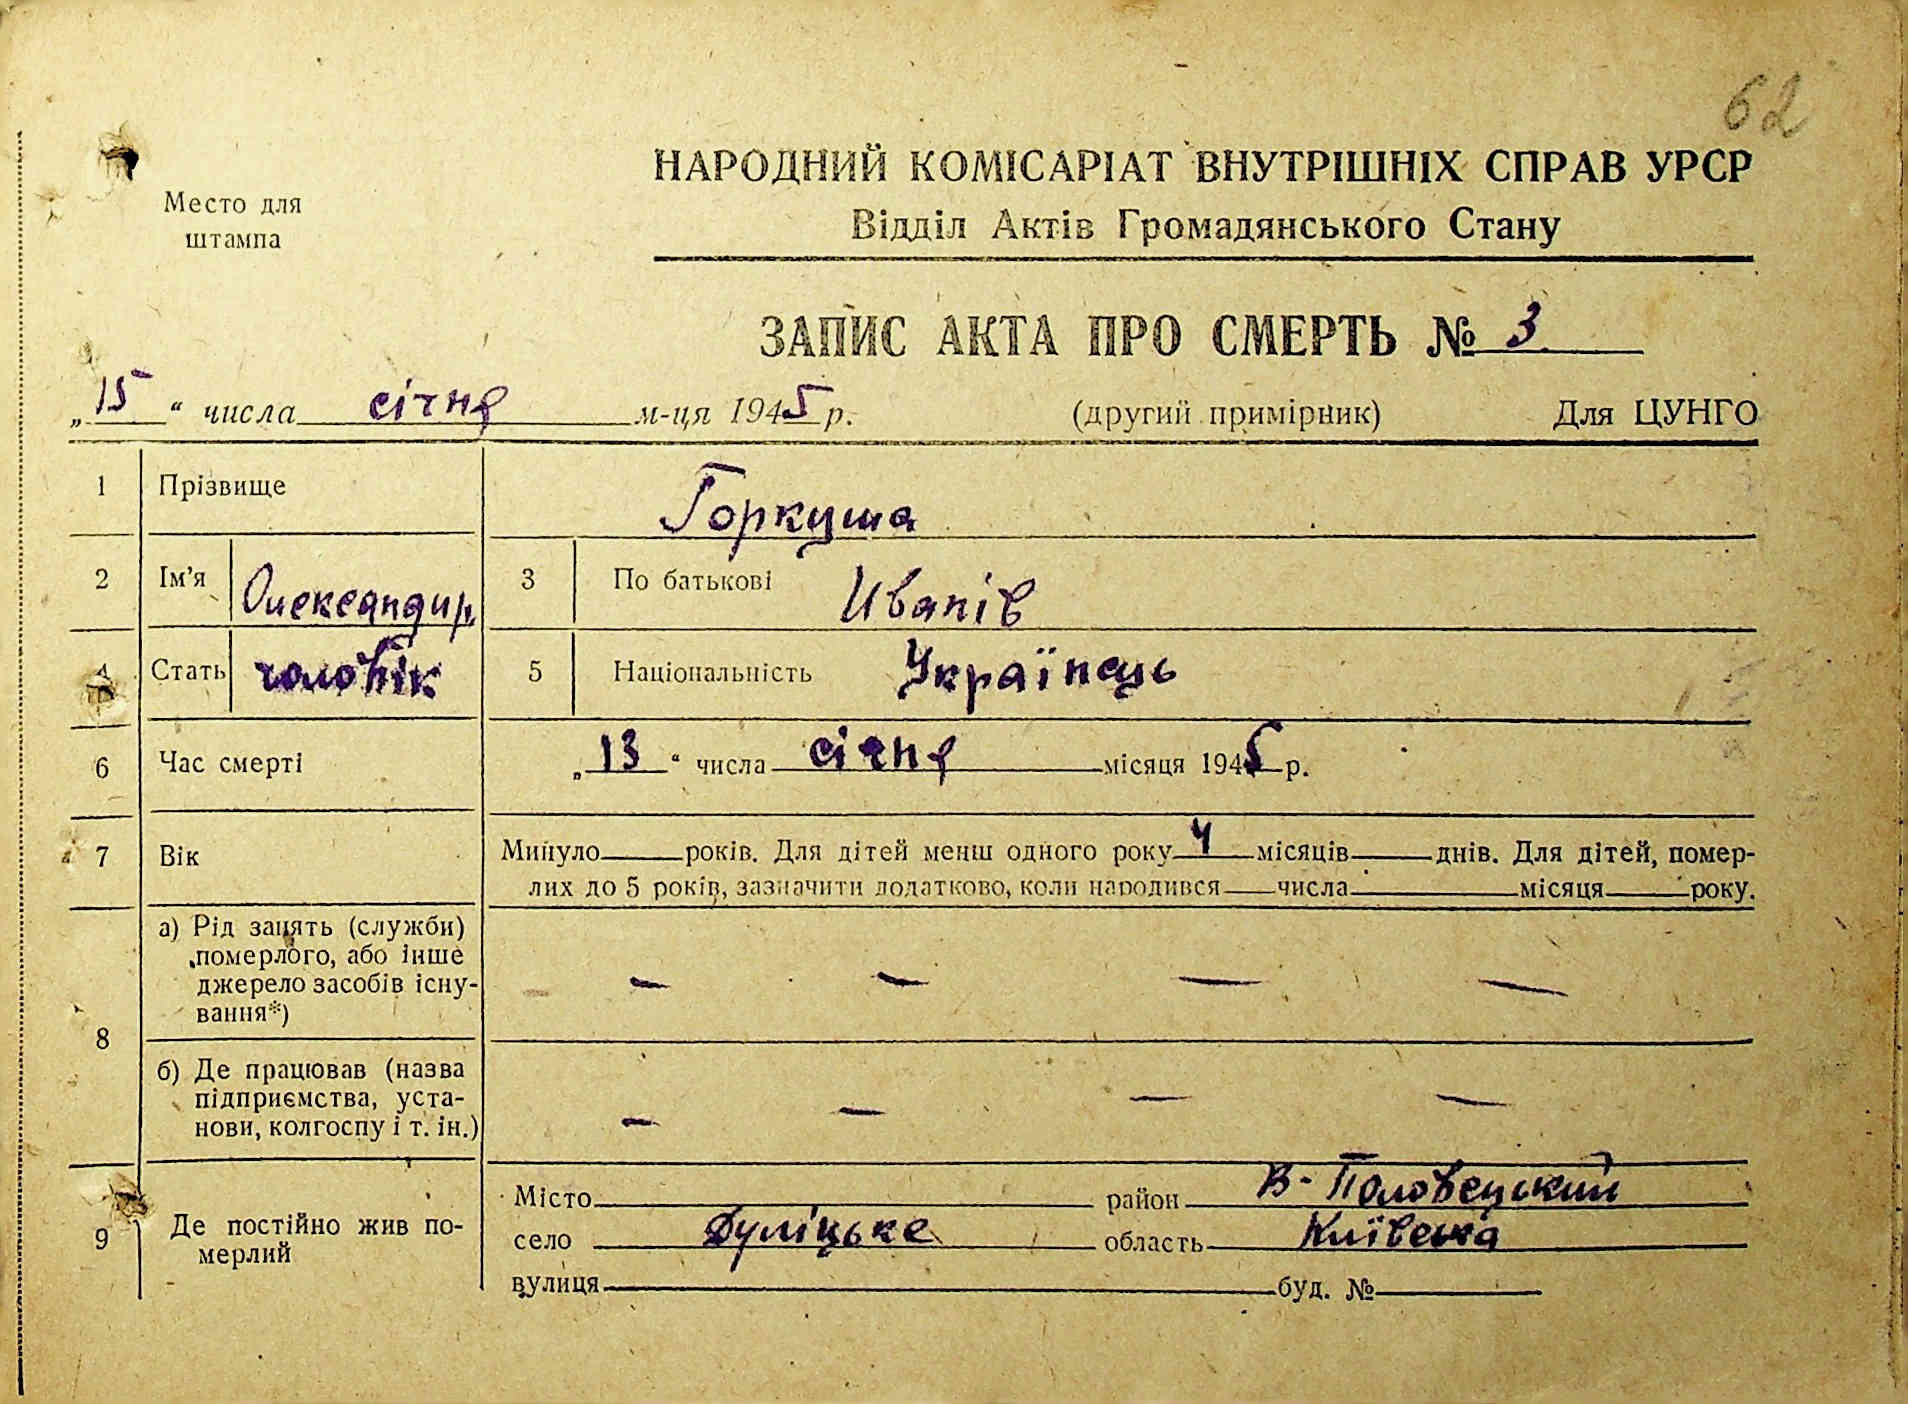 62
НАРОДНИЙ КОМІСАРІАТ ВНУТРІШНІХ СПРАВ УРСР
Место для
штампа
Відділ Актів Громадянського Стану
ЗАПИС АКТА ПРО СМЕРТЬ № 3
„15“ числа січня м-ця 1945 р. (другий примірник) Для ЦУНГО
1 Прізвище Горкуша
2 Ім'я Олександр 3 По батькові Иванів
4 Стать чоловік 5 Національність Українець
6 Час смерті „13“ числа січня місяця 1945 р.
7 Вік Минуло років. Для дітей менш одного року 4 місяців днів. Для дітей, помер-
лих до 5 років, зазначити додатково, коли народився числа місяця року.
8 а) Рід занять (служби)
померлого, або інше
джерело засобів існу-
вання*) — — — —
б) Де працював (назва
підприємства, уста-
нови, колгоспу і т. ін.) — — — —
9 Де постійно жив по-
мерлий
Місто район В-Половецький
село Дуліцьке область Київська
вулиця буд. №